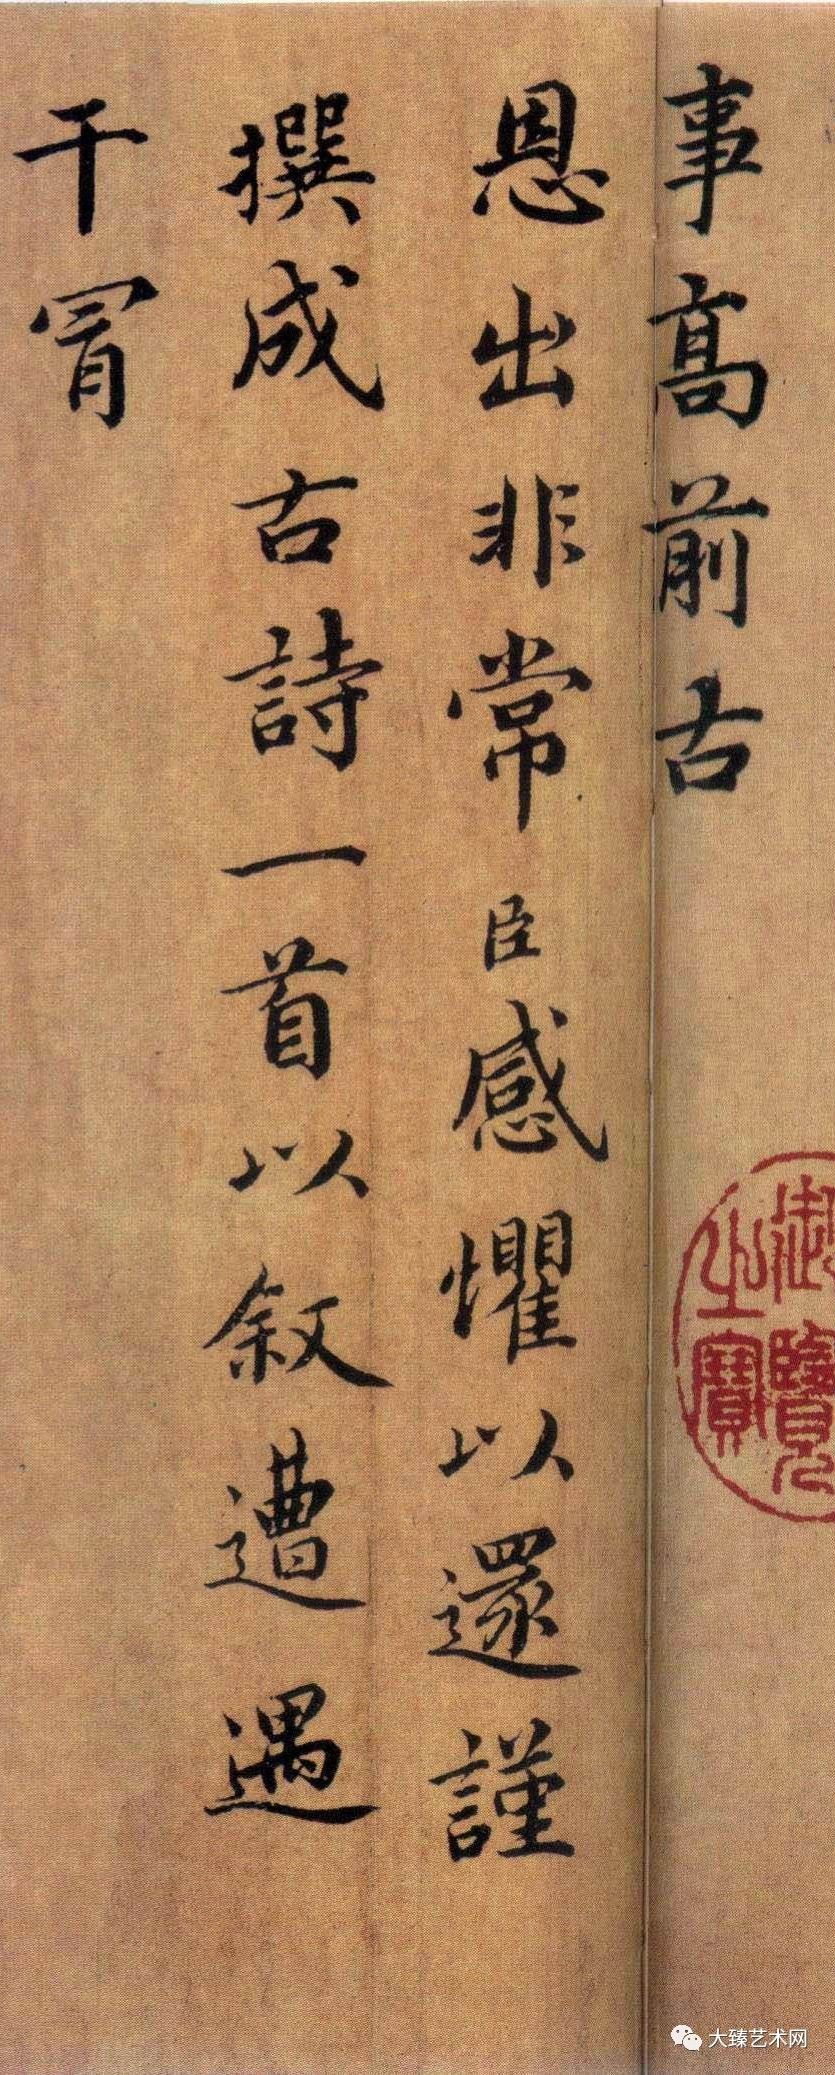 事高前古
恩出非常臣感懼以還謹
撰成古詩一首以敘遭遇
干冒
御覽之寶
大臻艺术网